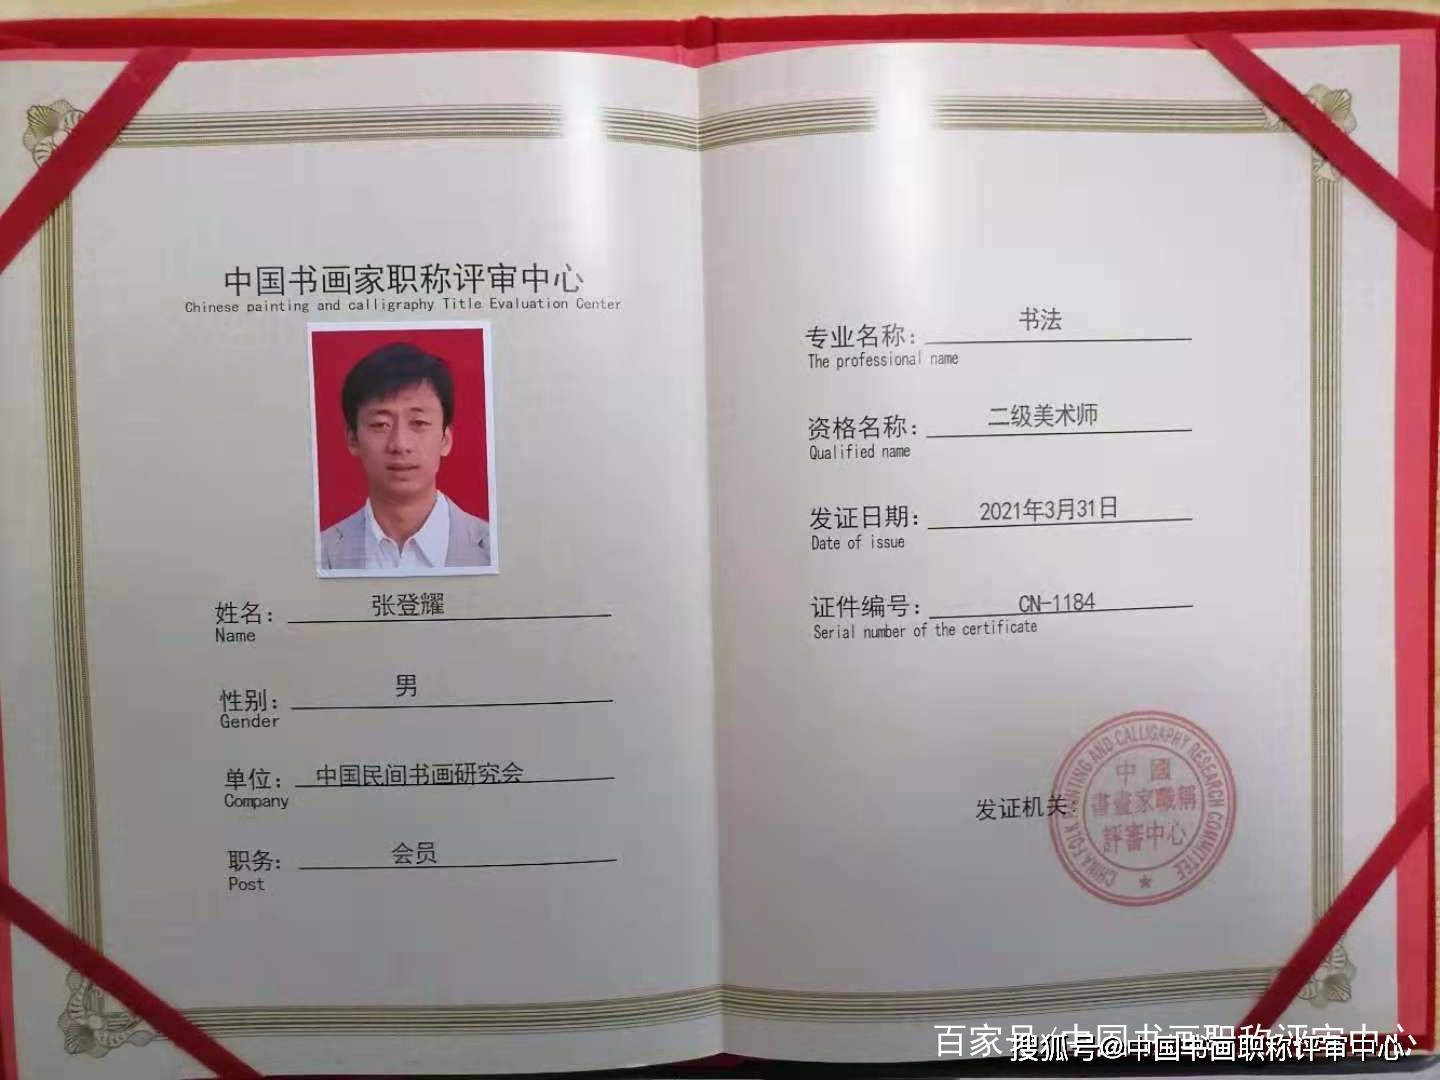 中国书画家职称评审中心
Chinese painting and calligraphy Title Evaluation Center
姓名： 张登耀
Name
性别： 男
Gender
单位： 中国民间书画研究会
Company
职务： 会员
Post
专业名称： 书法
The professional name
资格名称： 二级美术师
Qualified name
发证日期： 2021年3月31日
Date of issue
证件编号： CN-1184
Serial number of the certificate
发证机关：
CHINA FOLK PAINTING AND CALLIGAPHY RESEARCH COMMITTEE
中國
書畫家職稱
評審中心
百家号/中国书画职称评审中心
搜狐号@中国书画职称评审中心